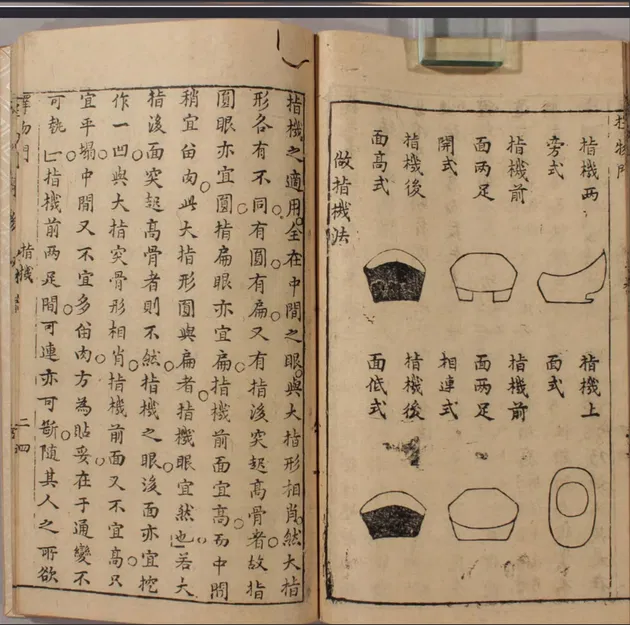 物門
指機两
旁式
指機前
面两足
開式
指機後
面高式
指機上
面式
指機前
面两足
相連式
指機後
面低式
做指機法
指機之適用全在中間之眼與大指形相肖然大指
形各有不同有圓有扁又有指後突起高骨者故指
圓眼亦宜圓指扁眼亦宜扁指機前面宜高而中間
稍宜留肉與大指形圓與扁者指機眼宜然也若大
指後面突起高骨者則不然指機之眼後面亦宜挖
作一凹與大指突骨形相肖指機前面又不宜高只
宜平塌中間又不宜多留肉方為貼妥在于通變不
可執一指機前两足間可連亦可斷隨其人之所欲
擇物門 指機 二四